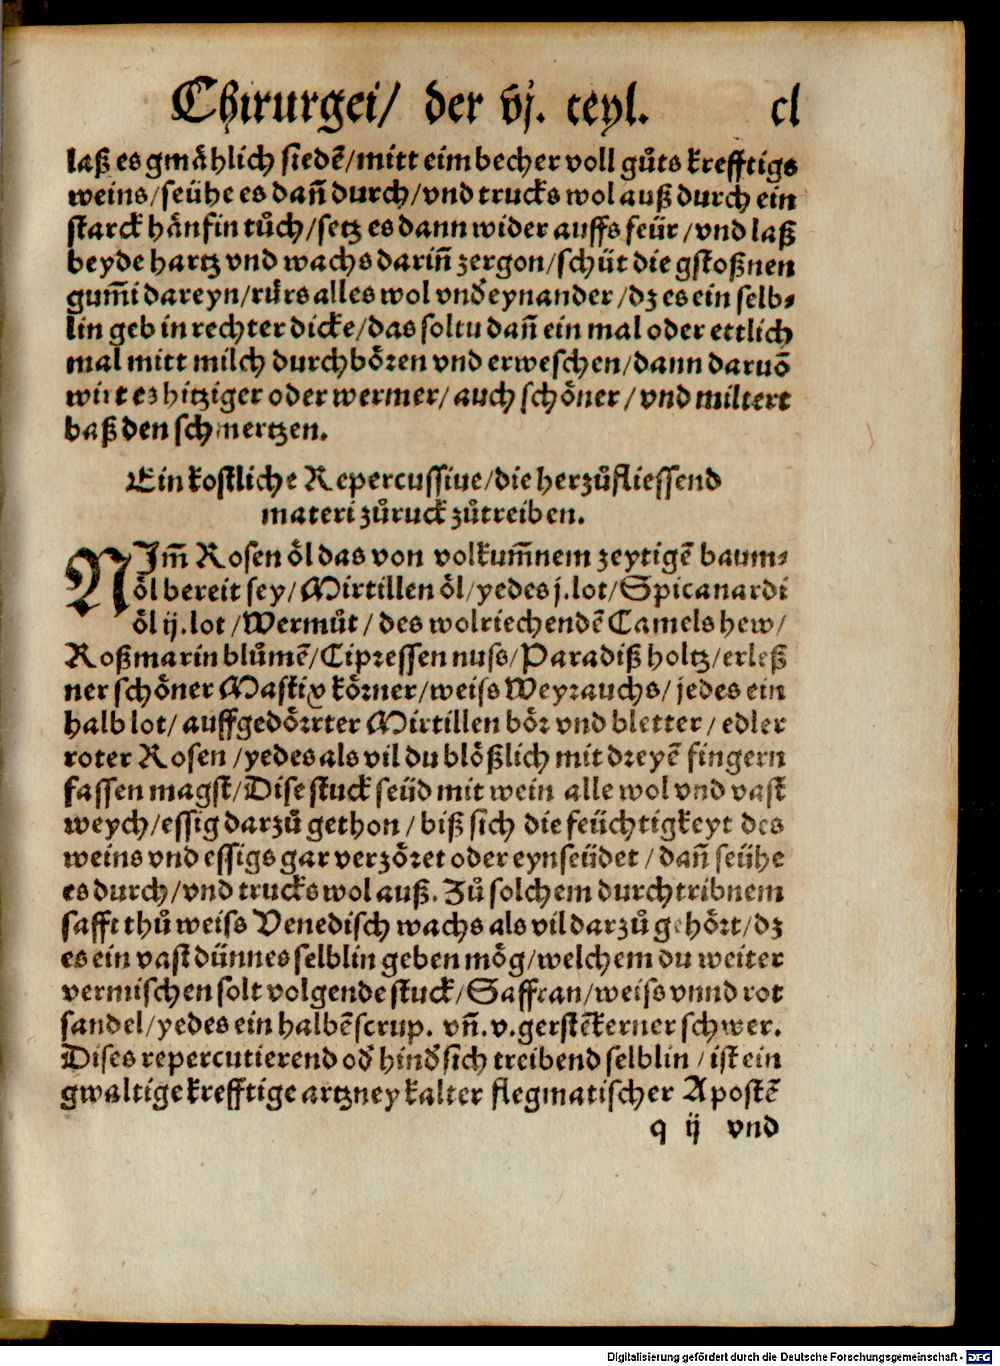 Chirurgei/ der vj. teyl. cl
laß es gmählich siedẽ/mitt eim becher voll gůts krefftigs
weins/seühe es dañ durch/vnd trucks wol auß durch ein
starck hänfin tůch/setz es dann wider auffs feür/vnd laß
beyde hartz vnd wachs dariñ zergon/schüt die gstoßnen
gum̃i dareyn/rürs alles wol vnd̕ eynander/dz es ein selb⸗
lin geb in rechter dicke/das soltu dañ ein mal oder ettlich
mal mitt milch durchböꝛen vnd erweschen/dann daruõ
wirt es hitziger oder wermer/auch schöner/vnd miltert
baß den schmertzen.
Ein kostliche Repercussiue/die herzůfliessend
materi zůruck zůtreiben.
NIm̃ Rosen öl das von volkum̃nem zeytigẽ baum⸗
öl bereit sey/Mirtillen öl/yedes j.lot/Spicanardi
öl ij.lot/Wermůt/des wolriechendẽ Camels hew/
Roßmarin blůmẽ/Cipꝛessen nuss/Paradiß holtz/erleß
ner schöner Mastix körner/weiss Weyꝛauchs/jedes ein
halb lot/auffgedöꝛrter Mirtillen böꝛ vnd bletter/edler
roter Rosen/yedes als vil du blößlich mit dꝛeyẽ fingern
fassen magst/Dise stuck seüd mit wein alle wol vnd vast
weych/essig darzů gethon/biß sich die feüchtigkeyt des
weins vnd essigs gar verzöꝛet oder eynseüdet/dañ seühe
es durch/vnd trucks wol auß. Zů solchem durchtribnem
safft thů weiss Venedisch wachs als vil darzů gehöꝛt/dz
es ein vast dünnes selblin geben mög/welchem du weiter
vermischen solt volgende stuck/Saffran/weiss vnnd rot
sandel/yedes ein halbẽ scrup. vñ.v.gerstẽkerner schwer.
Dises repercutierend od̕ hind̕sich treibend selblin/ist ein
gwaltige krefftige artzney kalter flegmatischer Apostẽ
q ij vnd
Digitalisierung gefördert durch die Deutsche Forschungsgemeinschaft - DFG